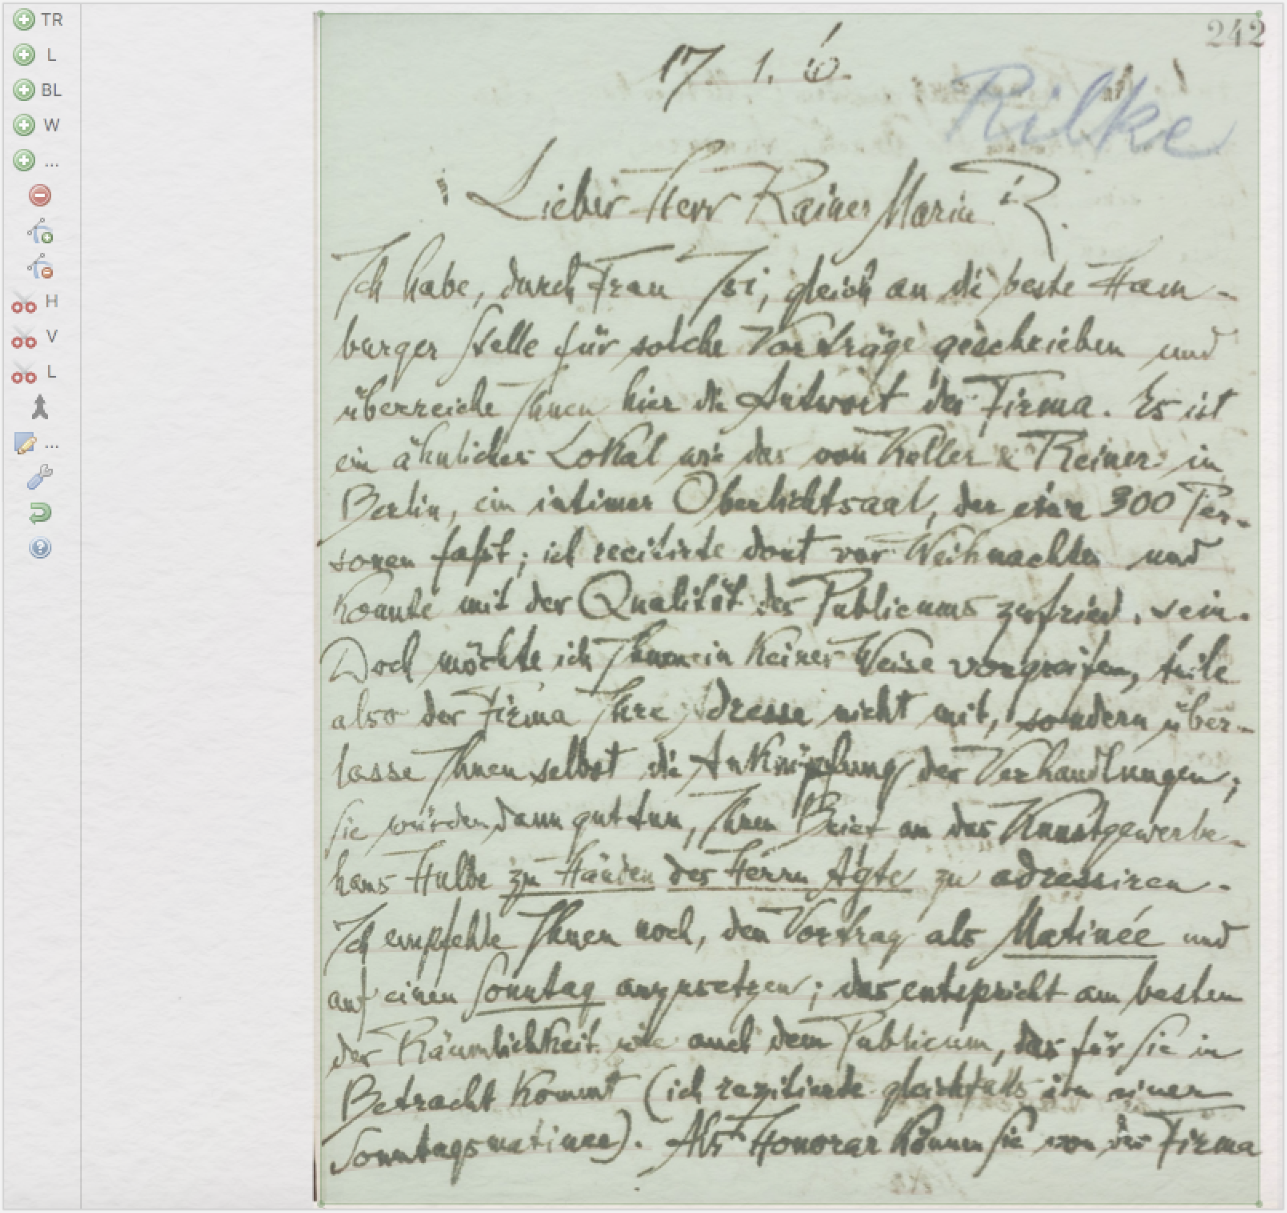 TR
L
BL
W
...
H
V
L
...
242
17 1. 6.
Rilke
Lieber Herr Rainer Maria R.
Ich habe, durch Frau Isi, gleich an die beste Ham-
burger Stelle für solche Vorträge geschrieben und
überreiche Ihnen hier die Antwort der Firma. Es ist
ein ähnliches Lokal wie das von Keller & Reiner in
Berlin, ein intimer Oberlichtsaal, der etwa 300 Per-
sonen faßt; ich recitirte dort vor Weihnachten und
konnte mit der Qualität des Publicums zufried. sein.
Doch möchte ich Ihnen in keiner Weise vorgreifen, teile
also der Firma Ihre Adresse nicht mit, sondern über-
lasse Ihnen selbst die Anknüpfung der Verhandlungen;
Sie würden dann gut tun, Ihren Brief an das Kunstgewerbe-
haus Hulbe zu Händen des Herrn Agte zu adressiren.
Ich empfehle Ihnen noch, den Vortrag als Matinée und
auf einen Sonntag anzusetzen; das entspricht am besten
der Räumlichkeit wie auch dem Publicum, das für Sie in
Betracht kommt (ich rezitierte gleichfalls in einer
Sonntagsmatinee). Als Honorar können Sie von der Firma